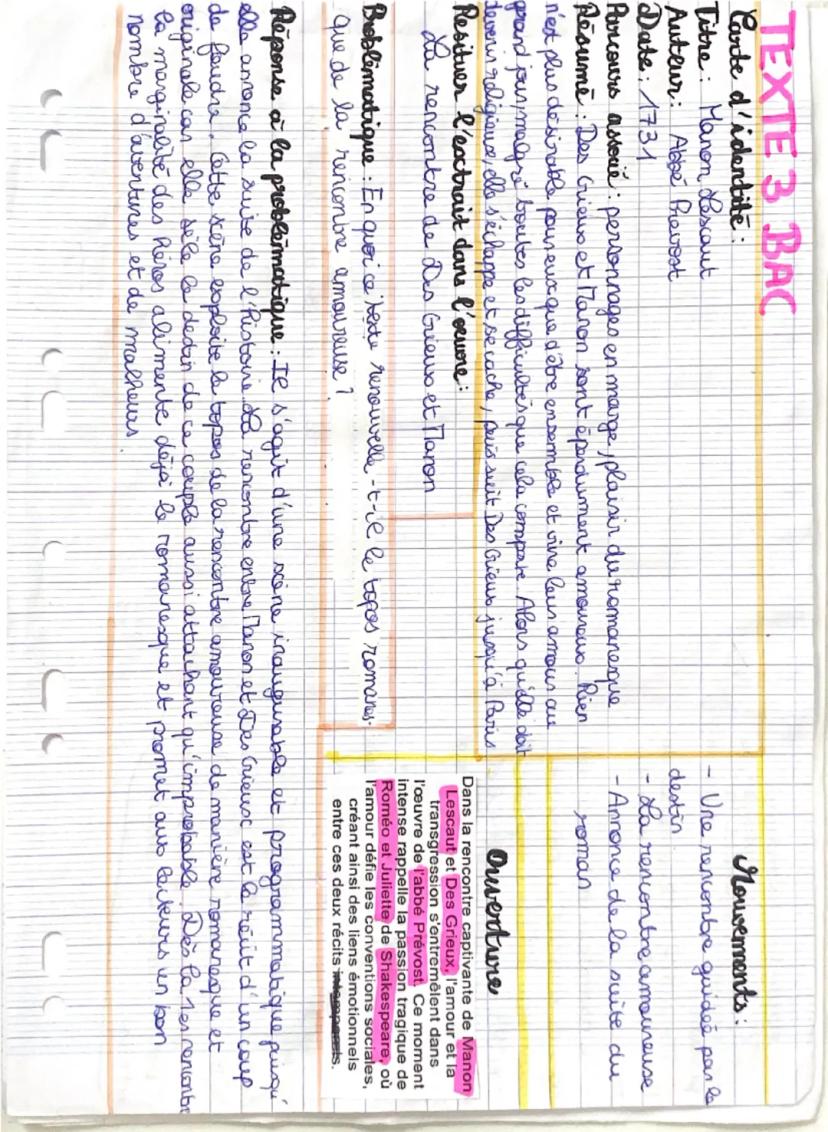 TEXTE 3 BAC
Carte d'identité :
Titre : Manon Lescaut
Auteur : Abbé Prevost
Date : 1731
Parcours associé : personnages en marge, plaisir du romanesque
Résumé : Des Grieux et Manon sont éperdument amoureux. Rien
n'est plus désirable pour eux que d'être ensemble et vivre leurs amours au
grand jour, malgré toutes les difficultés que cela comporte. Alors qu'elle doit
devenir religieuse, elle s'échappe et se cache, puis suit Des Grieux jusqu'à Paris
Resituer l'extrait dans l'oeuvre :
La rencontre de Des Grieux et Manon
Problèmatique : En quoi ce texte renouvelle-t-il le topos romanes-
que de la rencontre amoureuse ?
Réponse à la problèmatique : Il s'agit d'une scène inaugurable et programmatique puisqu'
elle annonce la suite de l'histoire. La rencontre entre Manon et Des Grieux est le récit d'un coup
de foudre. Cette scène exploite le topos de la rencontre amoureuse de manière romanesque et
originale car elle scèle le destin de ce couple aussi attachant qu'improbable. Dès la 1er rencontre
la marginalité des héros alimente déjà le romanesque et promet aux lecteurs un bon
nombre d'aventures et de malheurs
Mouvements :
- Une rencontre guidée par le
destin
- La rencontre amoureuse
- Annonce de la suite du
roman
Ouverture
Dans la rencontre captivante de Manon
Lescaut et Des Grieux, l'amour et la
transgression s'entremêlent dans
l'œuvre de l'abbé Prévost. Ce moment
intense rappelle la passion tragique de
Roméo et Juliette de Shakespeare, où
l'amour défie les conventions sociales,
créant ainsi des liens émotionnels
entre ces deux récits